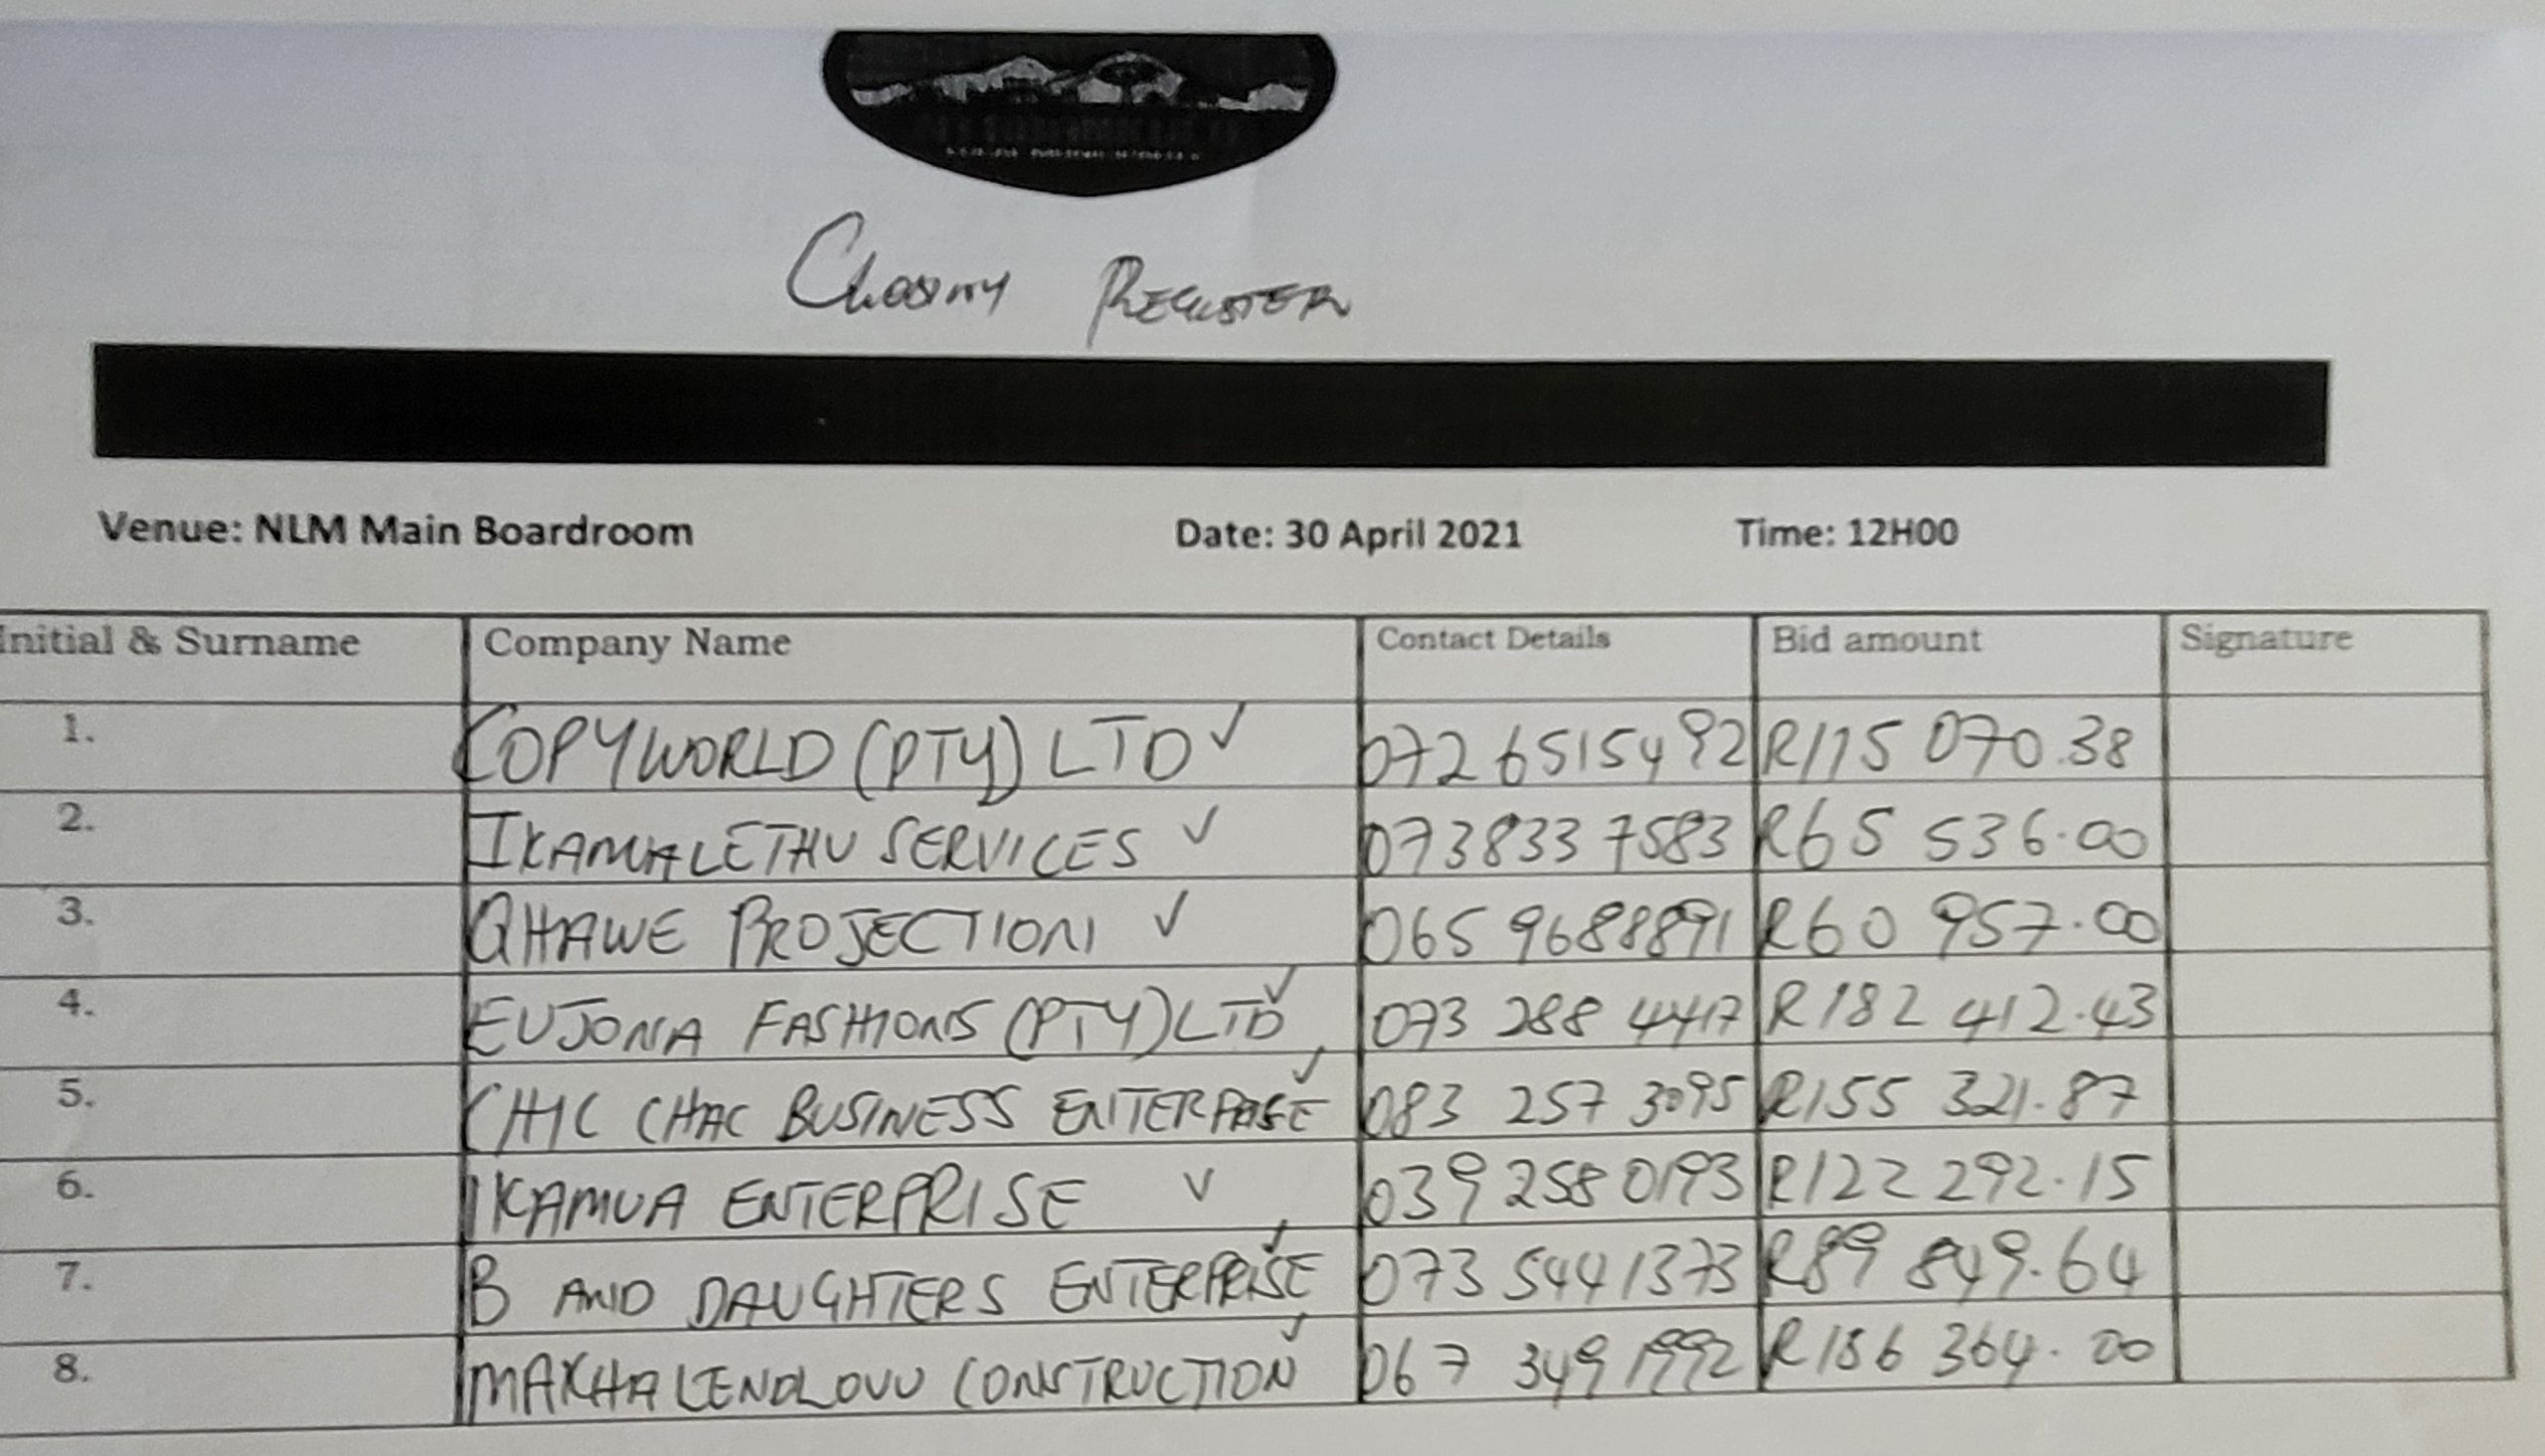 Closing REGISTER
Venue: NLM Main Boardroom Date: 30 April 2021 Time: 12H00
Initial & Surname Company Name Contact Details Bid amount Signature
1. COPYWORLD (PTY) LTD ✓ 072 6515492 R115 070.38
2. IKAMVALETHU SERVICES ✓ 073833 7583 R65 536.00
3. QHAWE PROJECTION ✓ 065 9688891 R60 957.00
4. EUJONA FASHIONS (PTY) LTD ✓ 073 288 4417 R182 412.43
5. CHIC CHAC BUSINESS ENTERPRISE ✓ 083 257 3095 R155 321.87
6. IKAMVA ENTERPRISE ✓ 039 258 0193 R122 292.15
7. B AND DAUGHTERS ENTERPRISE ✓ 073 544 1373 R89 849.64
8. MAKHALENDLOVU CONSTRUCTION ✓ 067 349 1992 R156 364.00